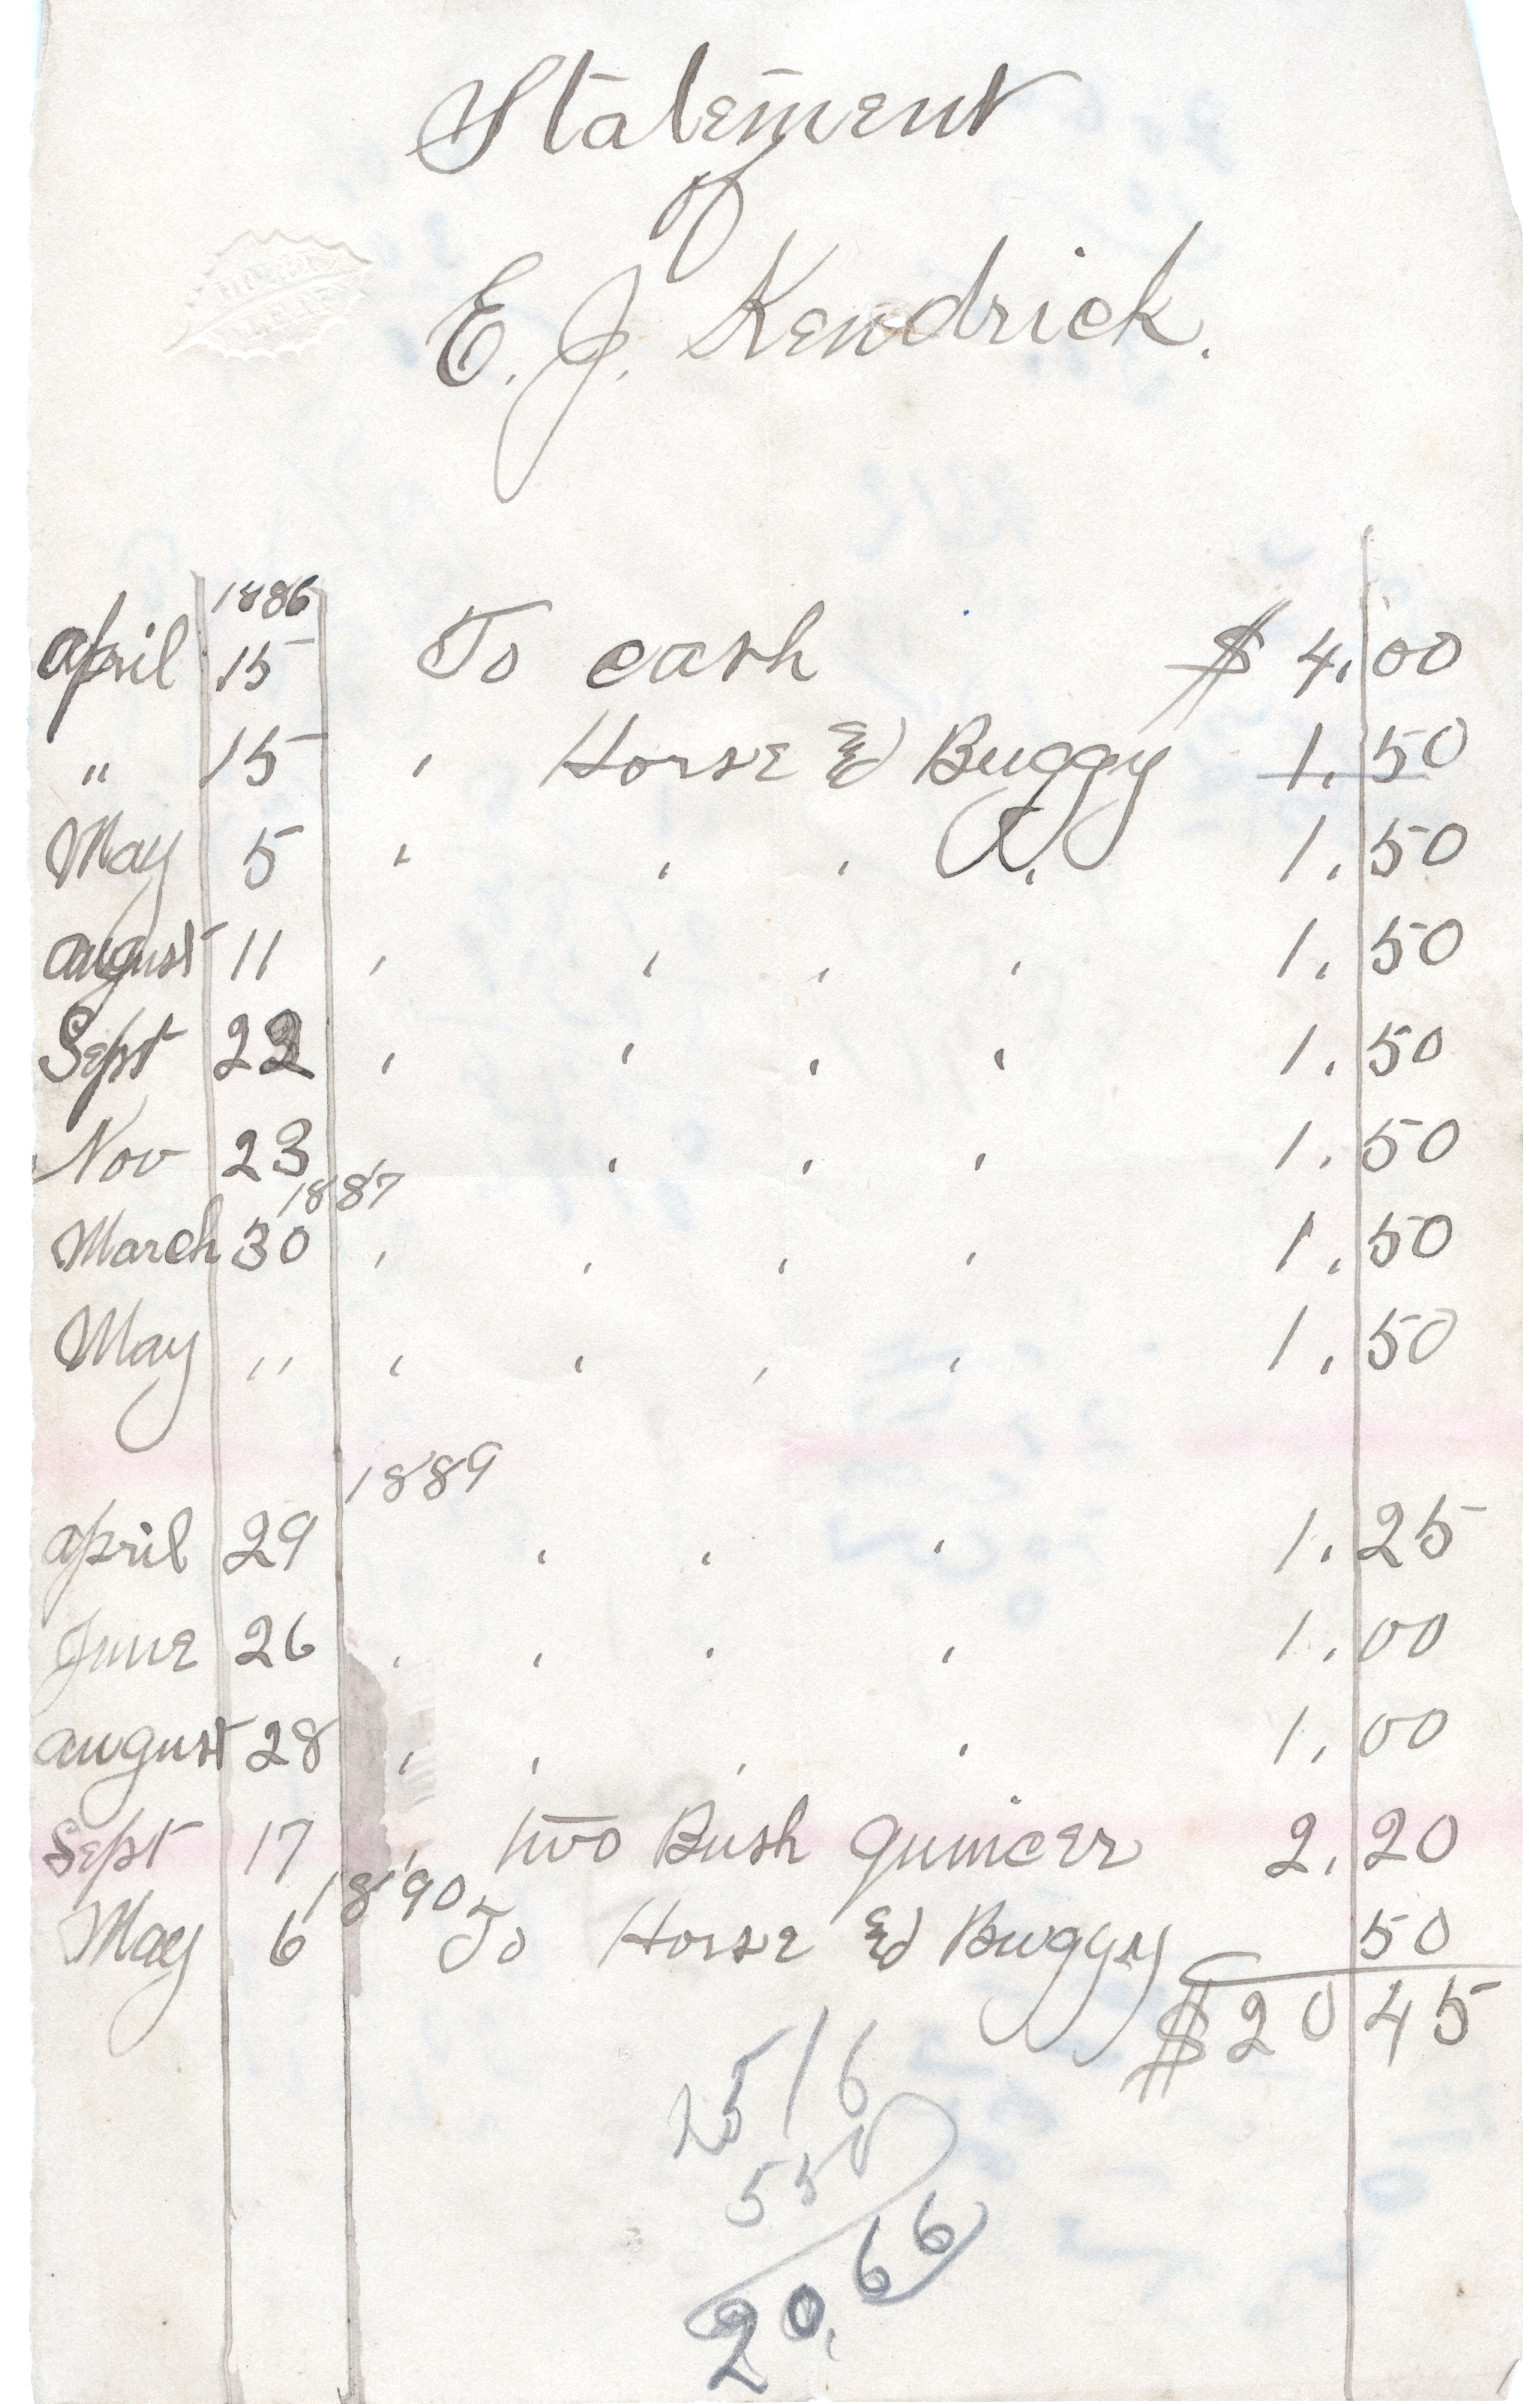 Statement
of
E. J. Kendrick.
1886
April 15 To cash $ 4.00
" 15 " Horse & Buggy 1.50
May 5 " " " " 1.50
August 11 " " " " 1.50
Sept 22 " " " " 1.50
Nov 23 " " " 1.50
1887
March 30 " " " " 1.50
May " " " " " 1.50
1889
April 29 " " " 1.25
June 26 " " " " 1.00
August 28 " " " " 1.00
Sept 17 " two Bush quinces 2.20
1890
May 6 To Horse & Buggy 50
$20 45
25/6
550
20.66